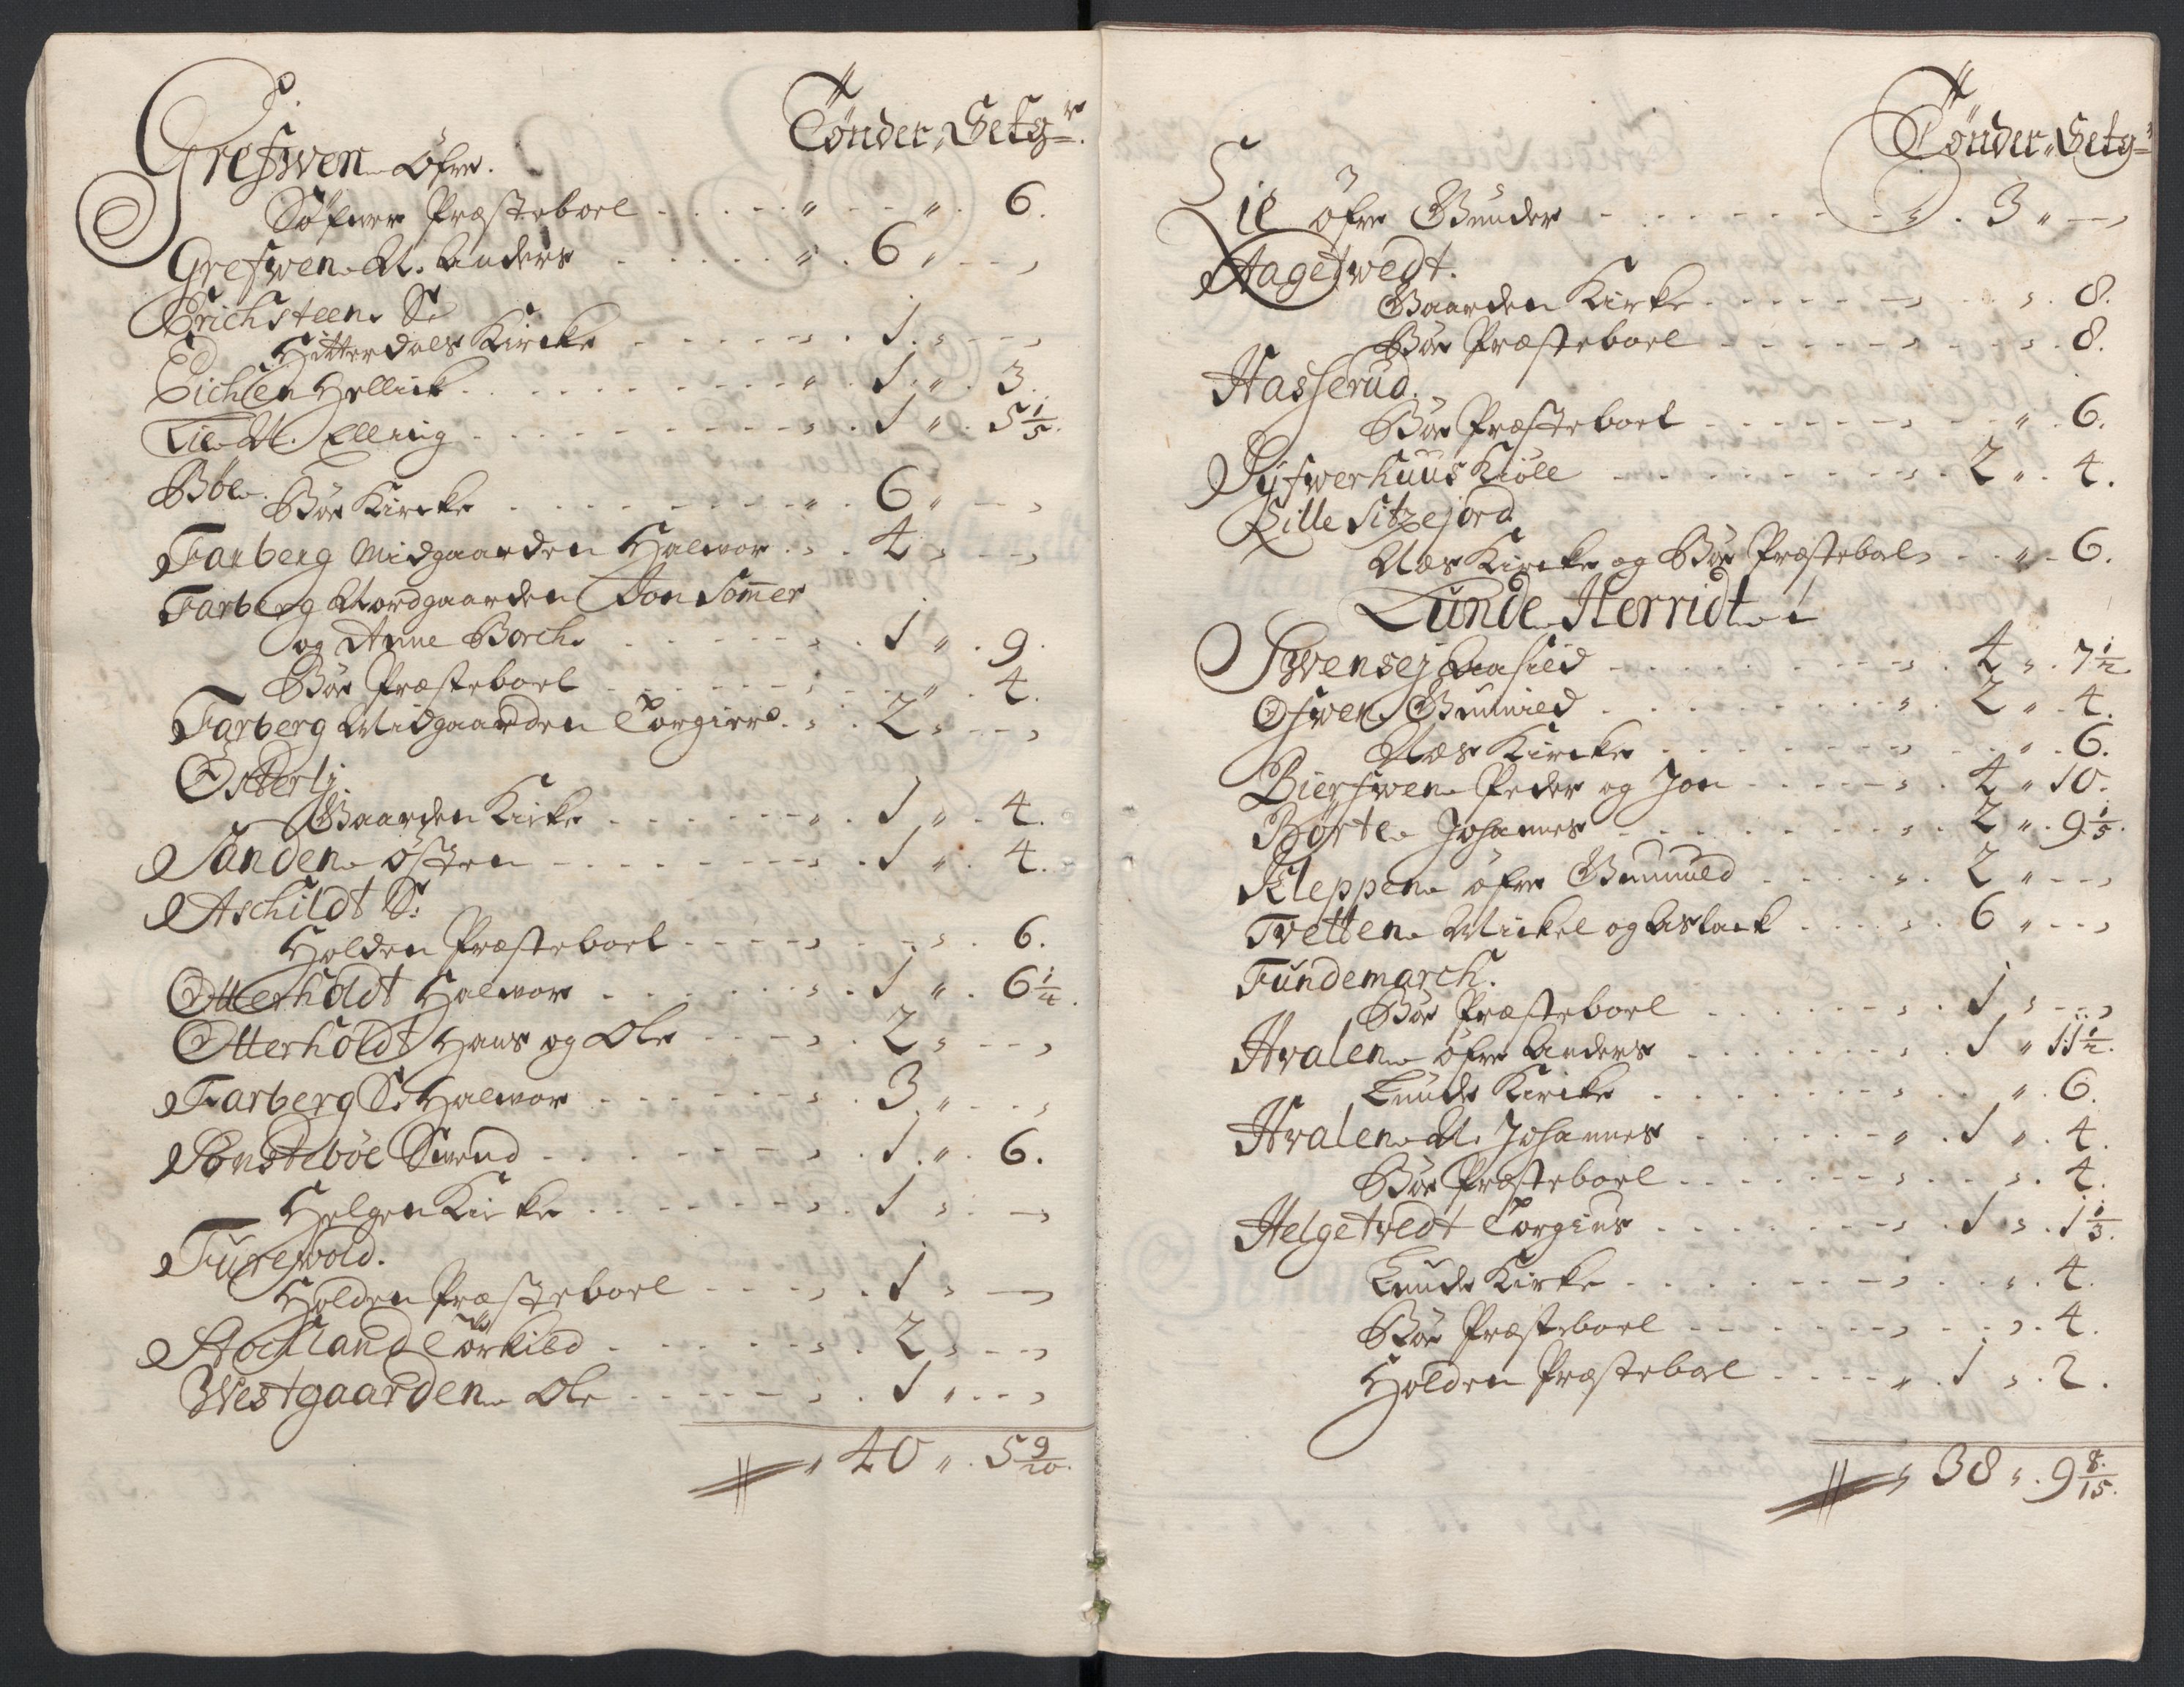 Tønder, Setgr.
Grefwen øfre.
Præsteboel - - - - „ - - „ . 6.
Grefwen N. Anders - - - - „ . 6 „ - - ,
Erichsteen S.
Hitterdals Kircke - - - - „ . 1 „ - - ,
Eichlen Hellick - - - - „ . 1 „ . 3.
Lie N. Elling - - - - „ . 1 „ . 5 1/5.
Böe.
Böe Kircke - - - - „ . 6 „ - - ,
Farberg Midgaarden Halwor - „ . 4 „ - - ,
Farberg Nordgaarden Jon Somer
og Anne Borch. - - - - „ . 1 „ . 9.
Böe Præsteboel - - - - „ - - „ . 4.
Farberg Midgaarden Torgier - „ . 2 „ - - ,
Østerli.
Gaarden Kirke - - - - „ . 1 „ . 4.
Sanden østen - - - - „ . 1 „ . 4.
Aschildt S:
Holden Præsteboel - - - - „ - - „ . 6.
Otterholdt Halwor - - - - „ . 1 „ . 6 1/4.
Otterholdt Hans og Ole - - - - „ . 2 „ - - ,
Farberg S. Halwor - - - - „ . 3 „ - - ,
Sønsteböe Swend - - - - „ . 1 „ . 6.
Helgen Kirke - - - - „ . 1 „ - - ,
Turefwold.
Holden Præsteboel - - - - „ . 1 „ - - ,
Stochland Torkild - - - - „ . 2 „ - - ,
Westgaarden Ole - - - - „ . 1 „ - - ,
„ 40 „ . 5 9/20.
Tønder, Setgr
Lie øfre Gunder - - - - „ . 3 „ - - ,
Hagetwedt.
Gaarden Kirke - - - - „ - - „ . 8.
Böe Præsteboel - - - - „ - - „ . 8.
Hasserud.
Böe Præsteboel - - - - „ - - „ . 6.
Kiöll - - - - „ . 2 „ . 4.
Lille Sitzejord
Næs Kircke og Böe Præsteboel - - „ . 6.
Lunde Herridt
Swensej Aasild - - - - „ . 4 „ . 7 1/2.
Ofwen Gunnild - - - - „ . 2 „ . 4.
Næs Kircke - - - - „ - - „ . 6.
Bierfwen Peder og Jon - - - - „ . 4 „ 10.
Børte Johannes - - - - „ . 2 „ . 9 1/5.
Kleppen øfre Gunnuld - - - - „ . 2 „ - - ,
Tvetten Mickel og Aslack - - - - „ . 6 „ - - ,
Fundemarch.
Böe Præsteboel - - - - „ . 1 „ - - ,
Hvalen øfre Anders - - - - „ . 1 „ 11 1/2.
Lunde Kircke - - - - „ - - „ . 6.
Hvalen N. Johannes - - - - „ . 1 „ . 4.
Böe Præsteboel - - - - „ - - „ . 4.
Helgetvedt Torgius - - - - „ . 1 „ . 1 1/3.
Lunde Kirke - - - - „ - - „ . 4.
Böe Præsteboel - - - - „ - - „ . 4.
Holden Præsteboel - - - - „ . 1 „ . 2.
„ 38 „ . 9 8/15.